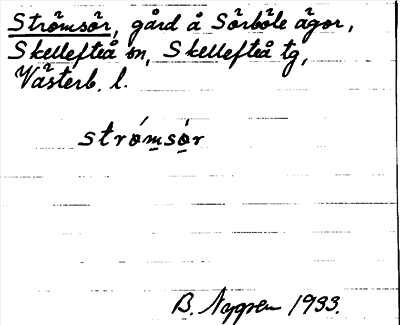 Strömsör, gård å Sörböle ägor,
Skellefteå sn, Skellefteå tg,
Västerb. l.
strǿmsǿr
B. Nygren 1933.